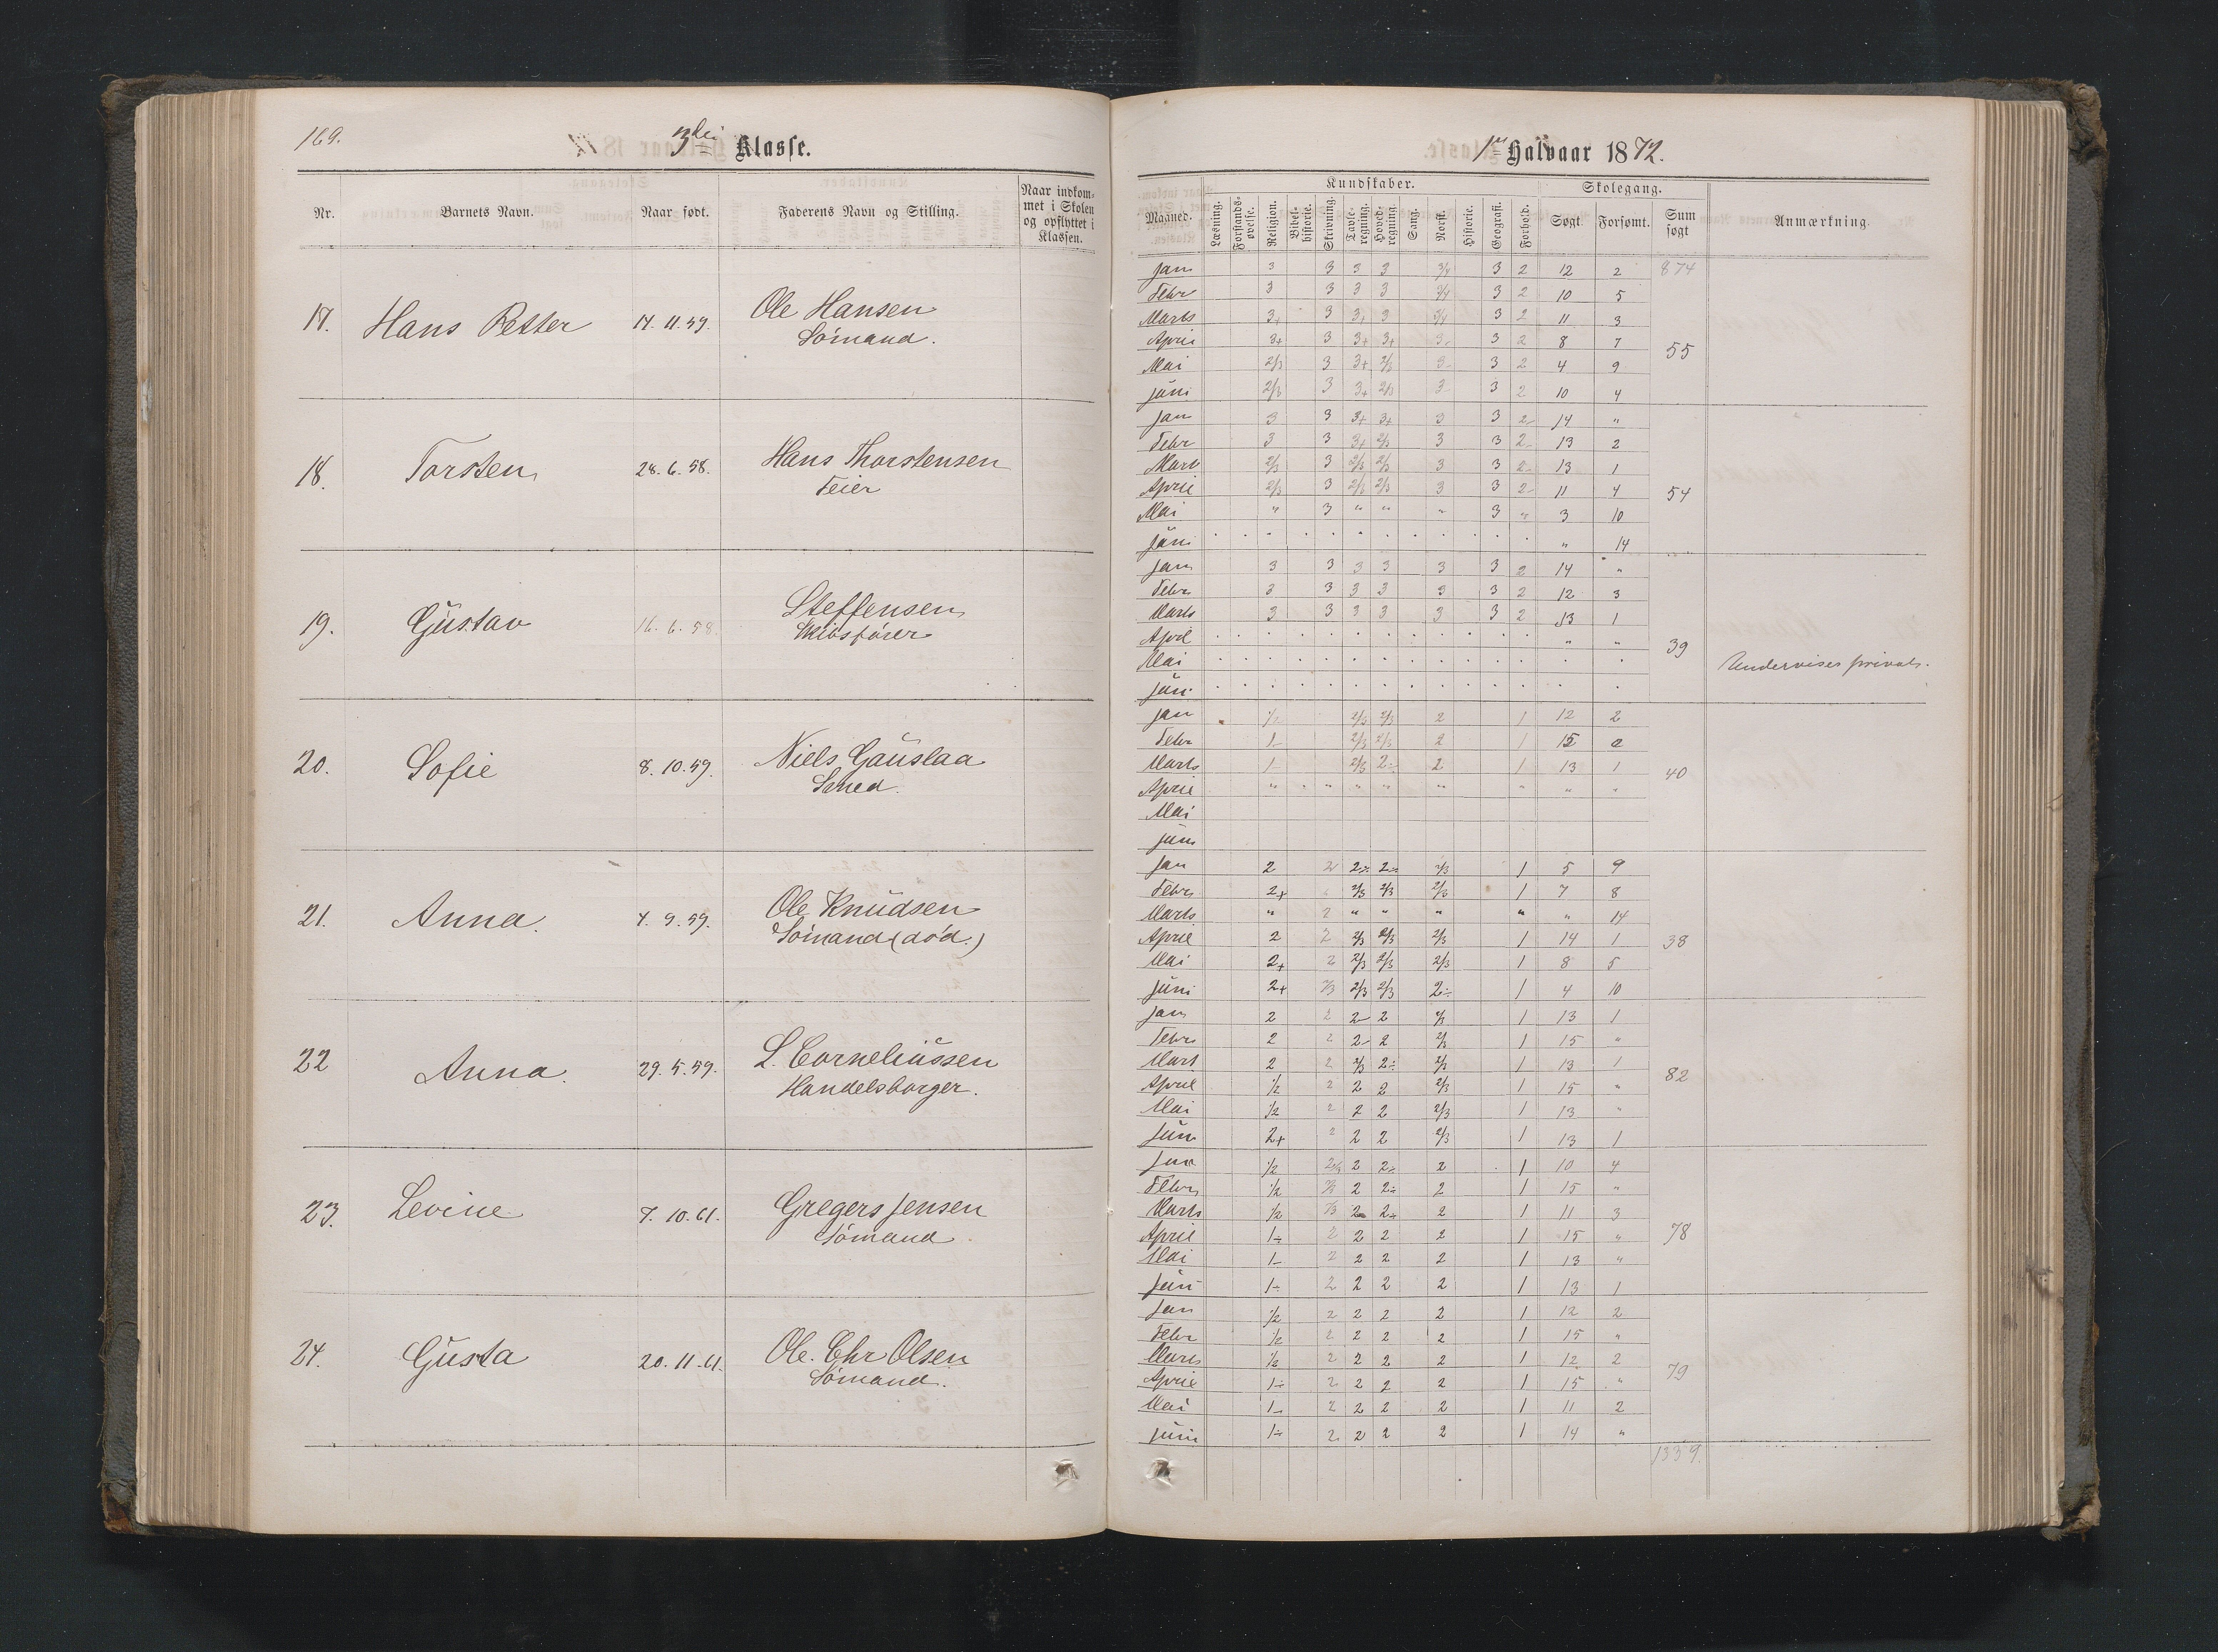 169.
3die Klasse.
Nr. Barnets Navn. Naar født. Faderens Navn og Stilling. Naar indkommet i Skolen og opflyttet i Klassen.
17. Hans Petter 17.11.59. Ole Hansen
Sömand.
18. Torsten 28.6.58. Hans Thorstensen
Feier
19. Gŭstav 16.6.58. Steffensen
Skibsförer
20. Sofie 8.10.59. Niels Gaŭslaa
Smed.
21. Anna. 7.9.59. Ole Knŭdsen
Sömand (död.)
22 Anna. 29.5.59. L. Corneliŭssen
Handelsborger.
23. Levine 7.10.61. Gregers Jensen
Sömand
24. Gŭsta 20.11.61. Ole Chr Olsen
Sömand.
1ste Halvaar 1872.
Maaned. Kundskaber. Skolegang. Anmærkning.
Læsning. Forstandsøvelse. Religion. Bibelhistorie. Skrivning. Tavleregning. Hovedregning. Sang. Norsk. Historie. Geografi. Forhold. Søgt Forsømt. Sum søgt
Jan 3 3 3 3 3/4 3 2 12 2 874
Febr 3 3 3 3 3/4 3 2 10 5
Marts 3+ 3 3+ 3 3/4 3 2 11 3
April 3+ 3 3+ 3+ 3- 3 2 8 7 55
Mai 2/3 3 3+ 2/3 3- 3 2 4 9
Jŭni 2/3 3 3+ 2/3 3- 3 2 10 4
Jan 3 3 3+ 3+ 3 3 2- 14 "
Febr 3 3 3+ 2/3 3 3 2- 13 2
Mart 2/3 3 2/3 2/3 3 3 2- 13 1
April 2/3 3 2/3 2/3 3 3 2- 11 4 54
Mai " 3 " " " 3 " 3 10
Jŭni " 14
Jan 3 3 3 3 3 3 2 14 "
Febr 3 3 3 3 3 3 2 12 3
Marts 3 3 3 3 3 3 2 13 1
April " " 39
Mai Undervises privat.
Jŭni
Jan 1/2 2/3 2/3 2 1 12 2
Febr 1- 2/3 2/3 2 1 15
Marts 1- 2/3 2÷ 2 1 13 1 40
April " " " " " " " " "
Mai
Jŭni
Jan 2 2 2÷ 2÷ 2/3 1 5 9
Febr 2+ 2/3 2/3 2/3 1 7 8
Marts " 2 " " " " " 14
April 2 2 2/3 2/3 2/3 1 14 1 38
Mai 2+ 2 2/3 2/3 2/3 1 8 5
Jŭni 2+ 2/3 2/3 2/3 2÷ 1 4 10
Jan 2 2 2- 2 2/3 1 13 1
Febr 2 2 2- 2 2/3 1 15 "
Mart 2 2 2/3 2÷ 2/3 1 13 1 82
April 1/2 2 2 2 2/3 1 15 "
Mai 1/2 2 2 2 2/3 1 13 "
Jŭni 2+ 2 2 2 2/3 1 13 1
Jan 1/2 2/3 2 2÷ 2 1 10 4
Febr 1/2 2/3 2 2÷ 2 1 15 "
Marts 1/2 2/3 2 2+ 2 1 11 3
April 1÷ 2 2 2 2 1 15 " 78
Mai 1- 2 2 2 2 1 13 "
Jŭni 1÷ 2 2 2 2 1 13 1
Jan 1/2 2 2 2 2 1 12 2
Febr 1/2 2 2 2 2 1 15 "
Marts 1/2 2 2 2 2 1 12 2 79
April 1÷ 2 2 2 2 1 15 "
Mai 1- 2 2 2 2 1 11 2
Jŭni 1÷ 2 2 2 2 1 14 "
1339.